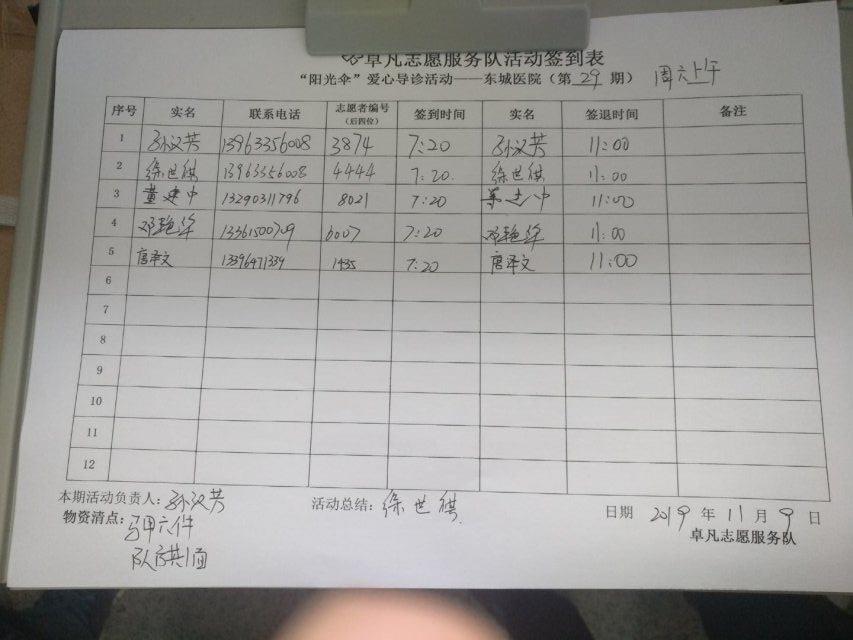 卓凡志愿服务队活动签到表
“阳光伞”爱心导诊活动——东城医院（第 29 期） 周六上午
序号 实名 联系电话 志愿者编号（后四位） 签到时间 实名 签退时间 备注
1 孙汉芳 13963356008 3874 7:20 孙汉芳 11:00
2 徐世祺 13963356008 4444 7:20. 徐世祺 11:00
3 董建中 13290311796 8021 7:20 董建中 11:00
4 邓艳华 13361500709 6007 7:20 邓艳华 11:00
5 唐泽文 13396471339 1435 7:20 唐泽文 11:00
6
7
8
9
10
11
12
本期活动负责人：孙汉芳 活动总结：徐世祺 日期 2019 年 11 月 9 日
物资清点：马甲六件 卓凡志愿服务队
队旗共1面